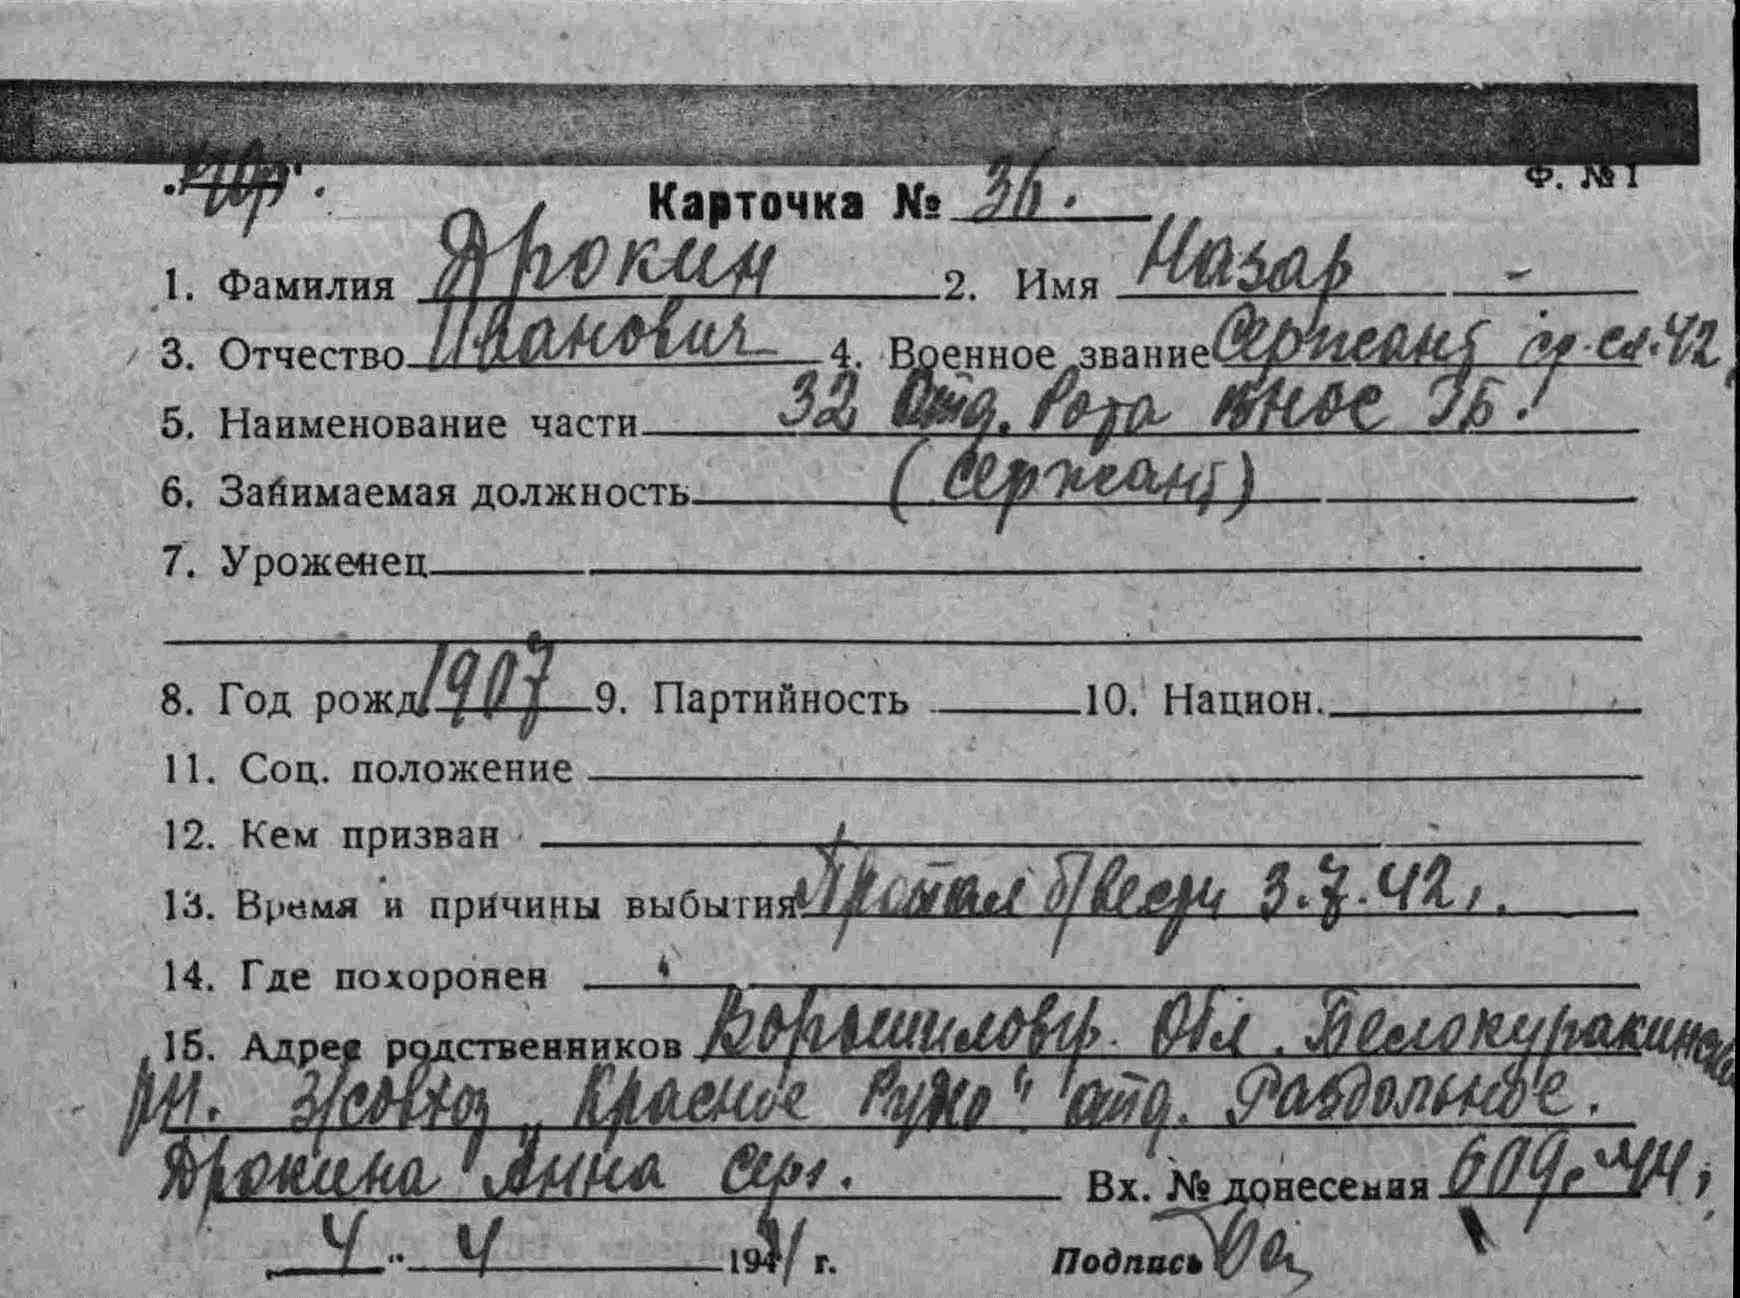 Ф. № 1
Карточка № 36.
1. Фамилия Дрокин 2. Имя Назар -
3. Отчество Иванович 4. Военное звание Сержант ср. сл. 42
5. Наименование части 32 Отд. Рота ВНОС
6. Занимаемая должность (сержант)
7. Уроженец
8. Год рожд. 1907 9. Партийность 10. Национ.
11. Соц. положение
12. Кем призван
13. Время и причины выбытия Пропал б/вести 3.7.42 г.
14. Где похоронен
15. Адрес родственников Ворошиловгр. Обл. Белокуракинский
рн. З/совхоз „Красное Руно" отд. Раздольное.
Дрокина Анна Серг. Вх. № донесения 609с-44 г.
4 " 4 1944 г. Подпись